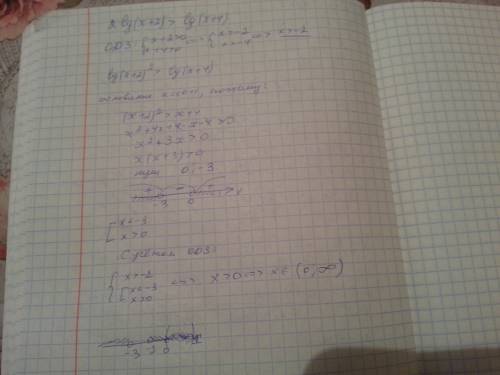 2 lg(x+2) > lg(x+4)
ОДЗ: { x+2>0 x+4>0 <=> { x>-2 x>-4 <=> x>-2
lg(x+2)² > lg(x+4)
основания
(x+2)² > x+4
x²+4x+4-x-4>0
x²+3x>0
x(x+3)>0
нули 0; -3
+ - + x
-3 0
[ x<-3
x>0
С учётом ОДЗ:
{ x>-2 [ x<-3 x>0 <=> x>0 <=> x∈(0;∞)
-3 -2 0